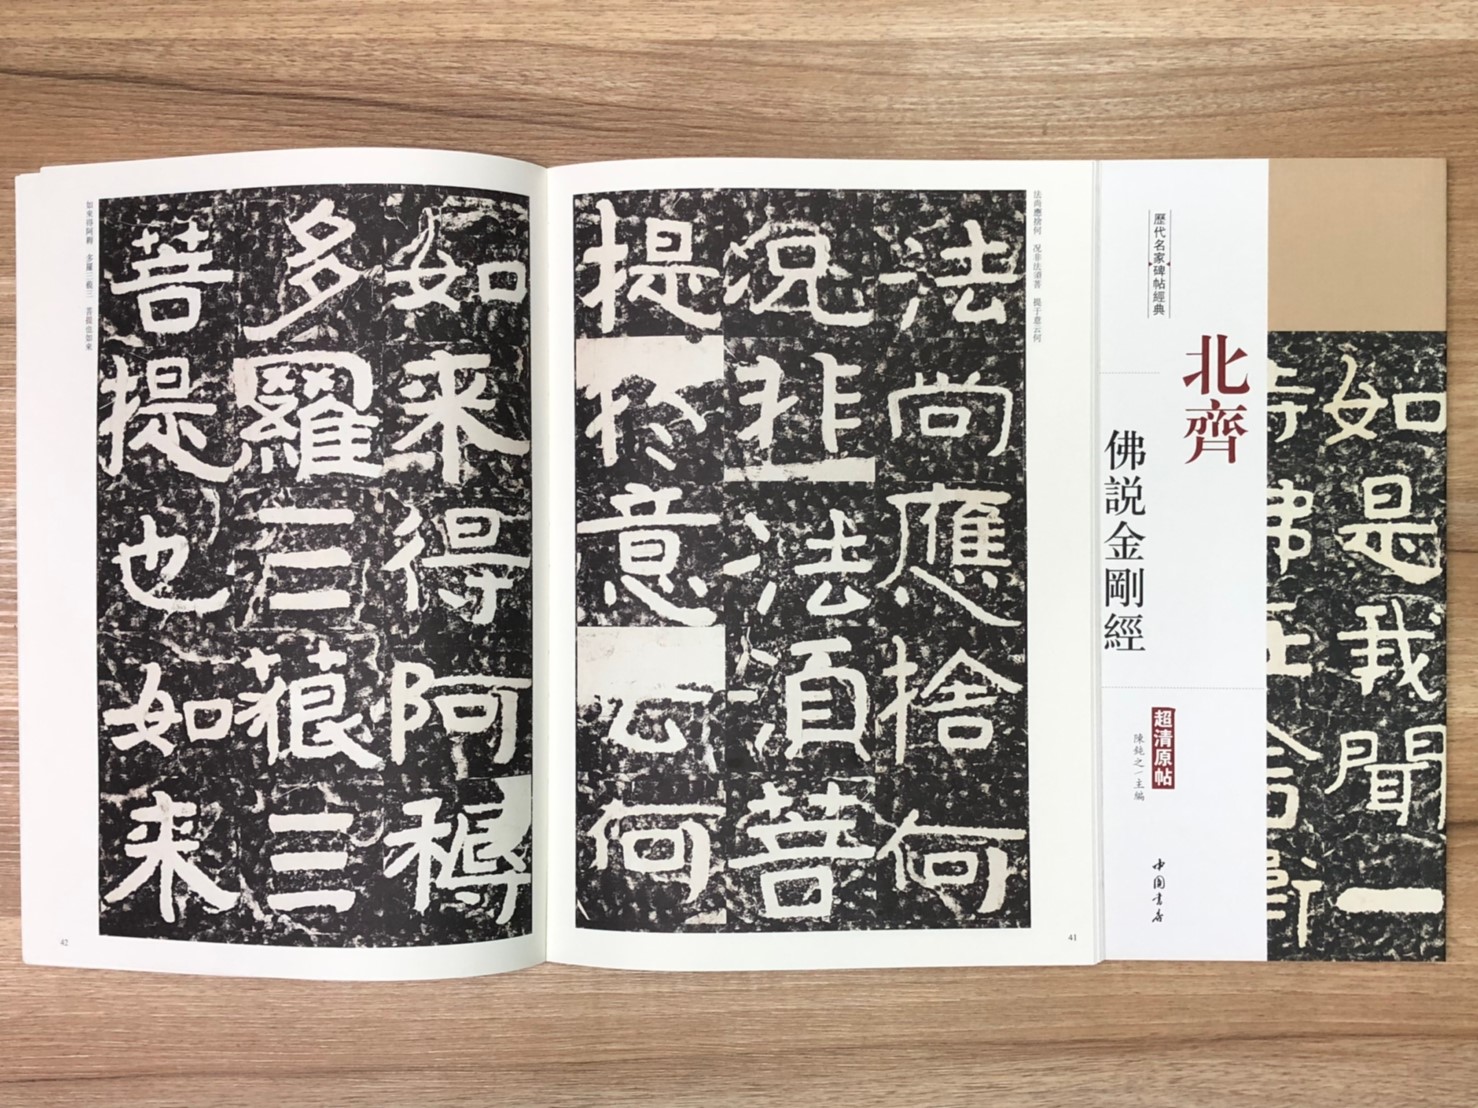 歷代名家碑帖經典
北齊
佛説金剛經
超清原帖
陳鈍之/主編
中國書店
如是我聞一
法尚應捨何
況非法須菩
提於意云何
法尚應捨何 況非法須菩 提于意云何
41
如来得阿耨
多羅三藐三
菩提也如来
如來得阿耨 多羅三藐三 菩提也如來
42